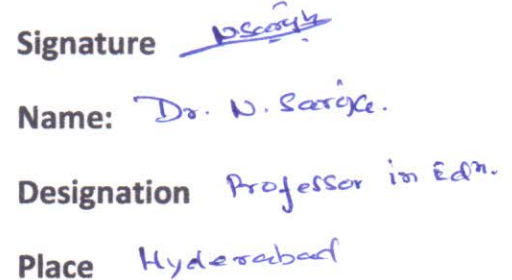 Signature
Name: Dr. N.
Designation Professor in Edn.
Place Hyderabad